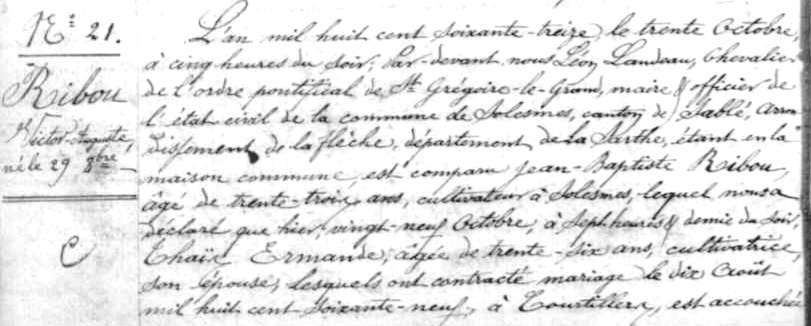 N° 21.
Ribou
Victor-Auguste,
né le 29 8bre
C
L'an mil huit cent soixante-treize, le trente Octobre,
à cinq heures du soir; Par-devant nous Léon Landeau, Chevalier
de l'ordre pontifical de St Grégoire-le-Grand, maire & officier de
l'état civil de la commune de Solesmes, canton de Sablé, arron
dissement de la flèche, département de la Sarthe, étant en la
maison commune, est comparu Jean-Baptiste Ribou,
âgé de trente-trois ans, cultivateur à Solesmes, lequel nous a
déclaré que hier, vingt-neuf Octobre, à sept heures & demie du soir,
Ermande, âgée de trente-six ans, cultivatrice,
son épouse, lesquels ont contracté mariage le dix Août
mil huit cent soixante-neuf, à est accouchée